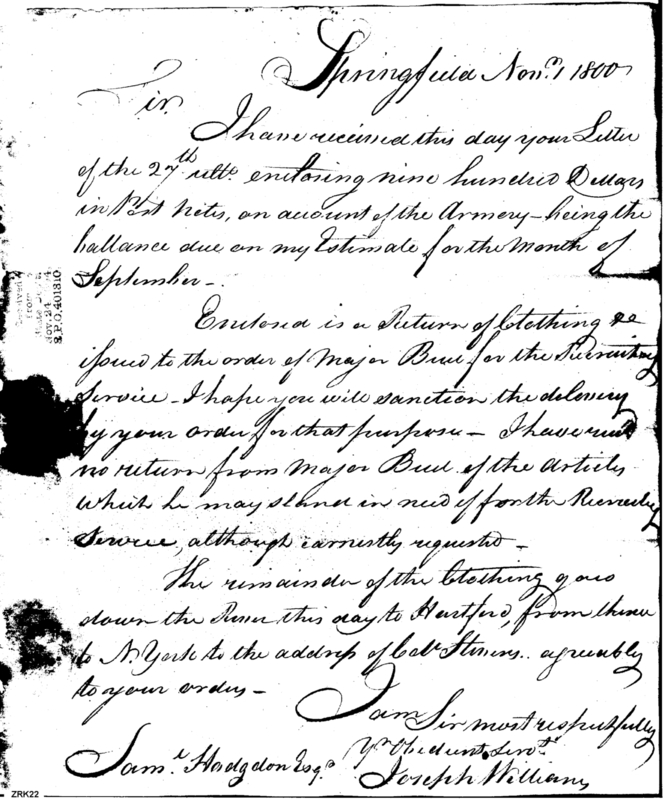 Springfield Novr. 1 1800
Sir.
I have received this day your Letter
of the 27th ulto. enclosing nine hundred Dollars
in Post Notes, on account of the Armory – being the
ballance due on my Estimate for the Month of
September –
Enclosed is a Return of Clothing &c
issued to the order of Major Buel for the Recruiting
Service – I hope you will sanction the delivery
by your order for that purpose – I have recd
no return from Major Buel of the articles
which he may stand in need of for the Recruiting
Service, although earnestly requested –
The remainder of the Clothing goes
down the River this day to Hartford, from thence
to N. York to the address of Colo. Stevens.. agreeably
to your orders –
I am
Sir most respectfully
Yr. Obedient Servt.
Saml. Hodgdon Esqr.
Joseph Williams
Received
from
Nov. 24
S.P.O. 401310.
ZRK22